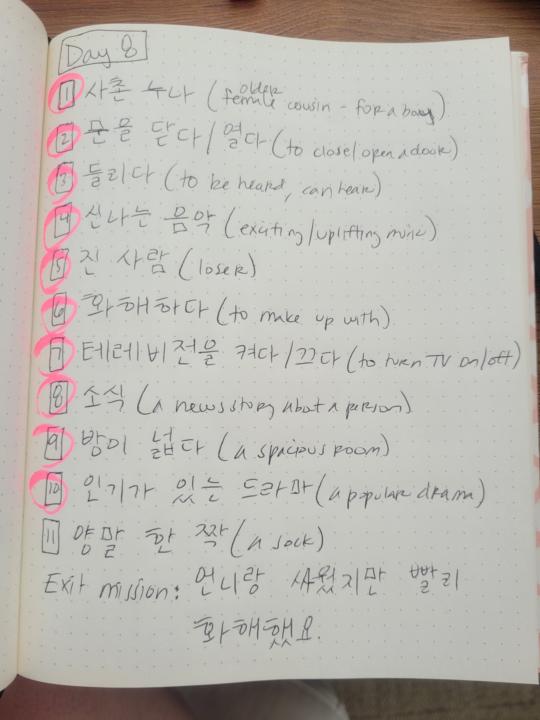 Day 8
1 사촌 누나 (older female cousin - for a boy)
2 문을 닫다/열다 (to close/open a door)
3 들리다 (to be heard, can hear)
4 신나는 음악 (exciting/uplifting music)
5 진 사람 (loser)
6 화해하다 (to make up with)
7 테레비전을 켜다/끄다 (to turn TV on/off)
8 소식 (a news story about a person)
9 방이 넓다 (a spacious room)
10 인기가 있는 드라마 (a popular drama)
11 양말 한 짝 (a sock)
Exit mission: 언니랑 싸웠지만 빨리
화해했요.